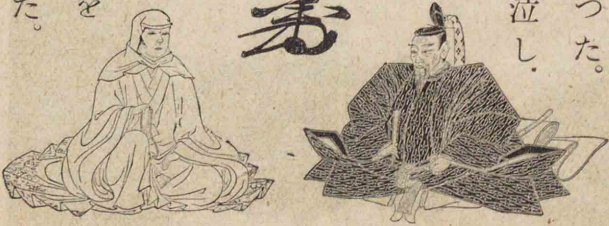 つた。
泣し、
を
た。